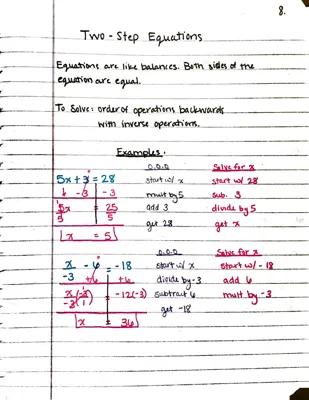 8.
Two-Step Equations
Equations are like balances. Both sides of the
equation are equal.
To Solve: order of operations backwards
with inverse operations.
Examples.
O.O.O Solve for x
5x + 3 = 28 start w/ x start w/ 28
-3 -3 mult by 5 sub. 3
5x/5 = 25/5 add 3 divide by 5
x = 5 get 28 get x
O.O.O Solve for x
x/-3 - 6 = -18 start w/ x start w/ -18
+6 +6 divide by -3 add 6
x/-3 (-3/1) = -12(-3) subtract 6 mult by -3
get -18
x = 36